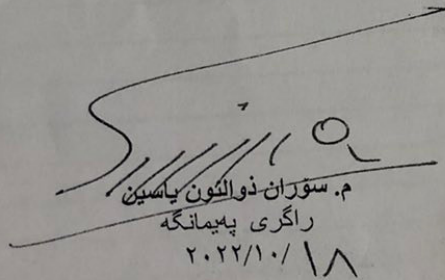 م. سۆران ذوالنون یاسین
راگری پەیمانگە
٢٠٢٢/١٠/١٨